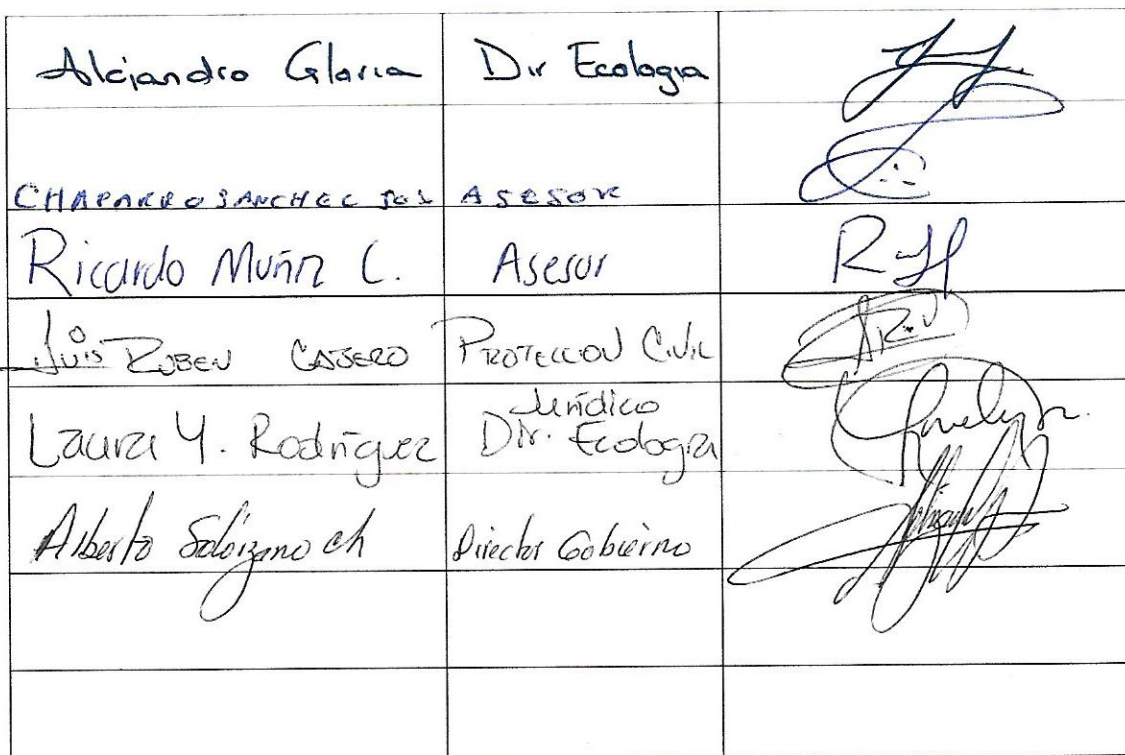 Alejandro Gloria Dir Ecologia
CHAPARRO SANCHEZ ASESOR
Ricardo Muñiz C. Asesor
Luis RUBEN CAJERO PROTECCION CIVIL
Laura Y. Rodríguez Jurídico Dir. Ecología
Alberto Solórzano ch Director Gobierno